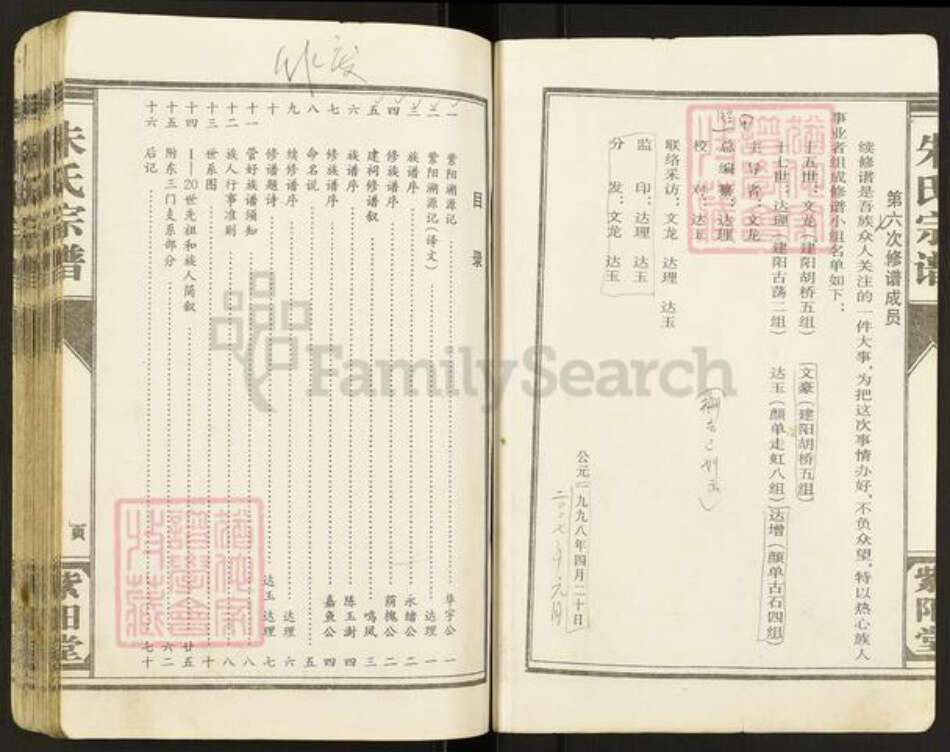 朱氏宗谱
紫阳堂
第六次修谱成员
续修谱是吾族众人关注的一件大事,为把这次事情办好,不负众望,特以热心族人
事业者组成修谱小组名单如下:
十五世:文龙(建阳胡桥五组) 文豪(建阳胡桥五组)
十七世:达理(建阳古荡二组) 达玉(颜单走虹八组) 达增(颜单古石四组)
主导者:文龙
总编纂:达理
校对:达玉
联络采访:文龙 达理 达玉
监印:达理 达玉
分发:文龙 达玉
公元一九九八年四月二十日
目录
一 紫阳溯源记 华宇公 一
二 紫阳溯源记(译文) 达理 一
三 族谱序 永绪公 二
四 修族谱序 荫槐公 二
五 建祠修谱叙 鸣凤 三
六 族谱序 陈玉澍 四
七 修族谱序 嘉鱼公 四
八 命名说 五
九 续修谱序 达理 六
十 修谱题诗 达玉 达理 七
十一 管好族谱须知 八
十二 族人行事准则 八
十三 世系图 十
十四 1—20世先祖和族人简叙 廿五
十五 附东三门支系部分 六二
十六 后记 七十
朱氏宗谱
页
紫阳堂
FamilySearch